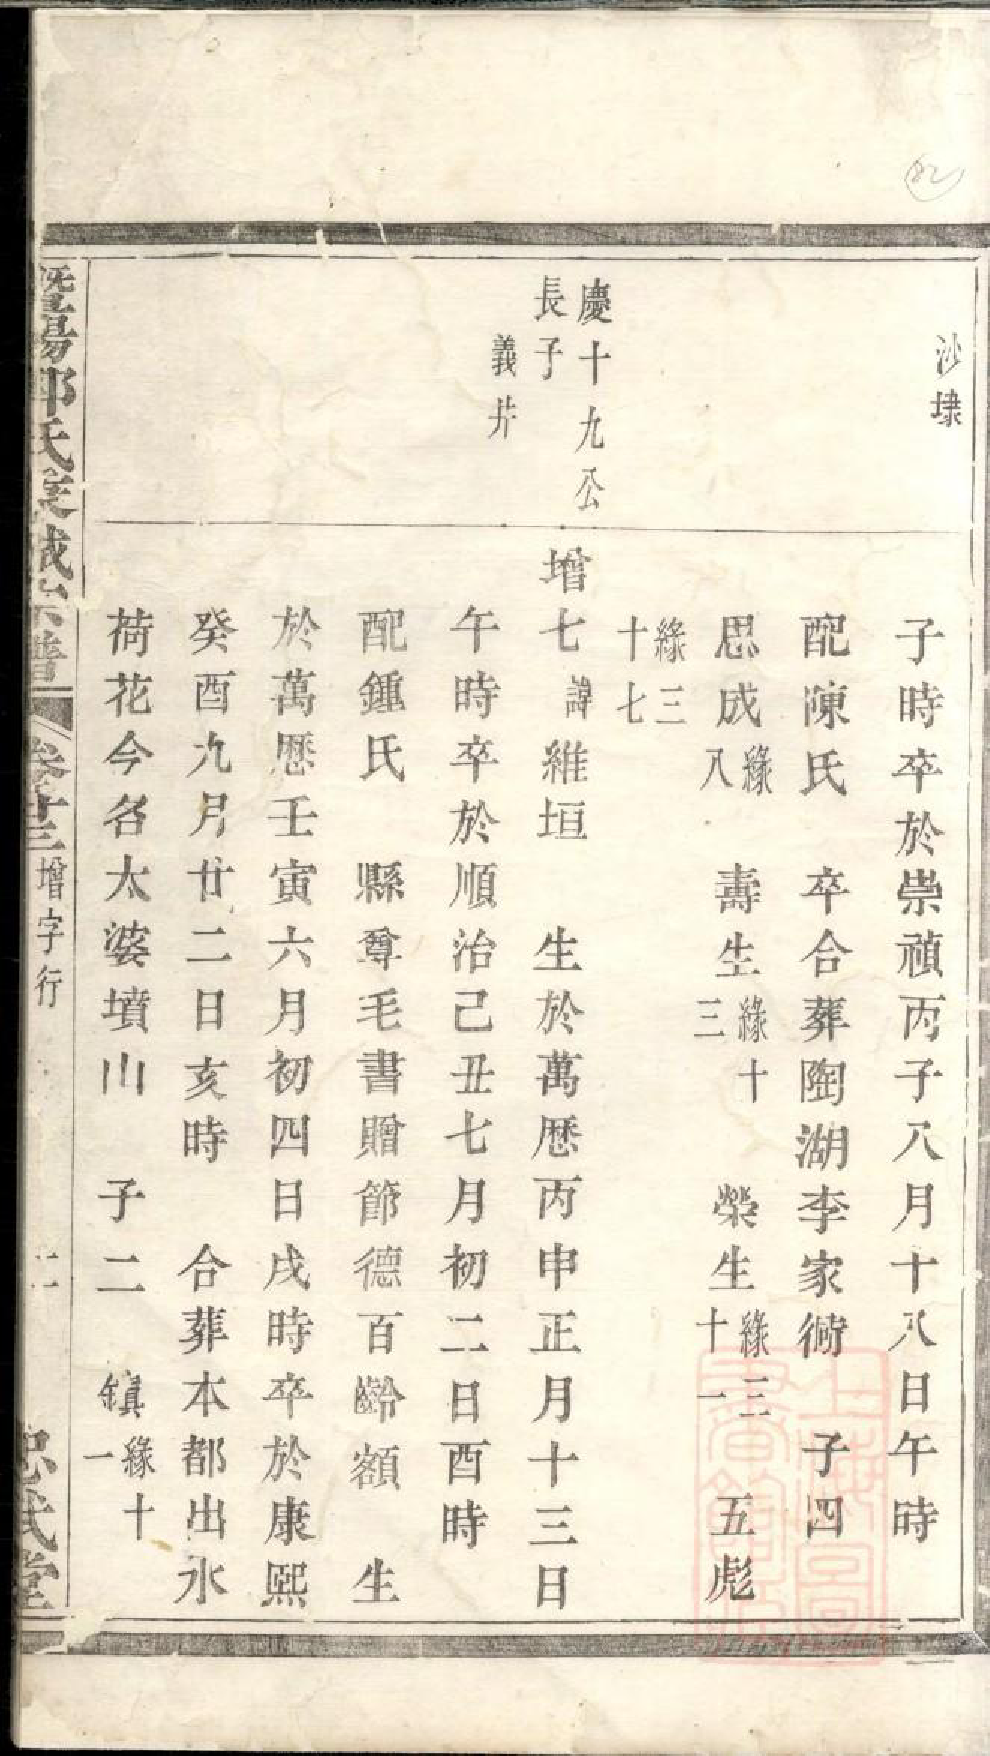 沙埭
子時卒於崇禎丙子八月十八日午時
配陳氏 卒合葬陶湖李家衕 子四
思成緣八 壽生緣十三 榮生緣三十一 五彪
緣三十七
慶十九公
長子
義廾
增七諱維垣 生於萬歷丙申正月十三日
午時卒於順治己丑七月初二日酉時
配鍾氏 縣尊毛書贈節德百齡額 生
於萬歷壬寅六月初四日戌時卒於康熙
癸酉九月廿二日亥時 合葬本都出水
荷花今名太婆墳山 子二 鎮緣十一
暨陽邱氏宗譜
卷廿三 增字行
二
忠武堂